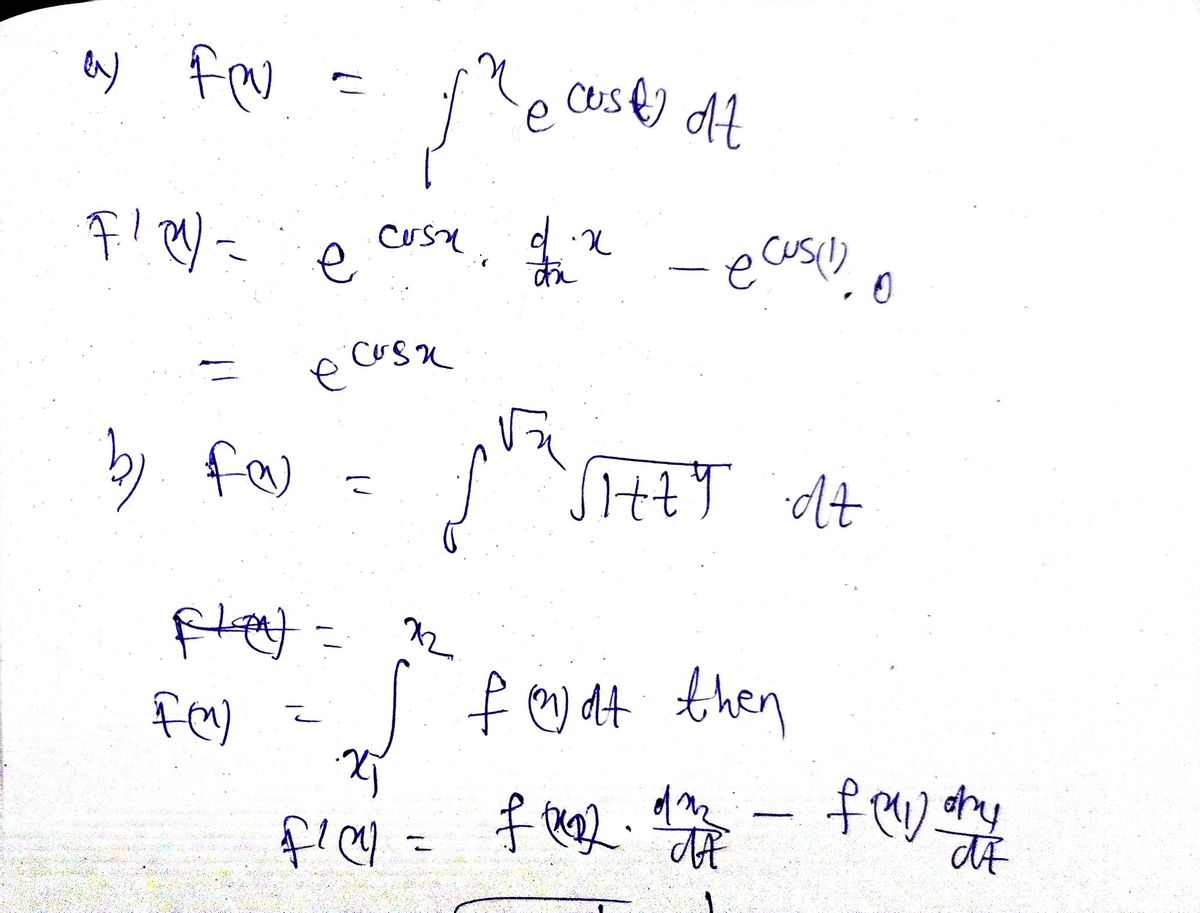 a) F(x) = ∫₁ˣ e^cos(t) dt
F'(x) = e^cosx . d/dx .x - e^cos(1) . 0
= e^cosx
b) F(x) = ∫₀^√x √(1+t⁴) dt
F'(x) =
F(x) = ∫_x₁^x₂ f(x) dt then
F'(x) = f(x₂). dx₂/dt - f(x₁) dx₁/dt